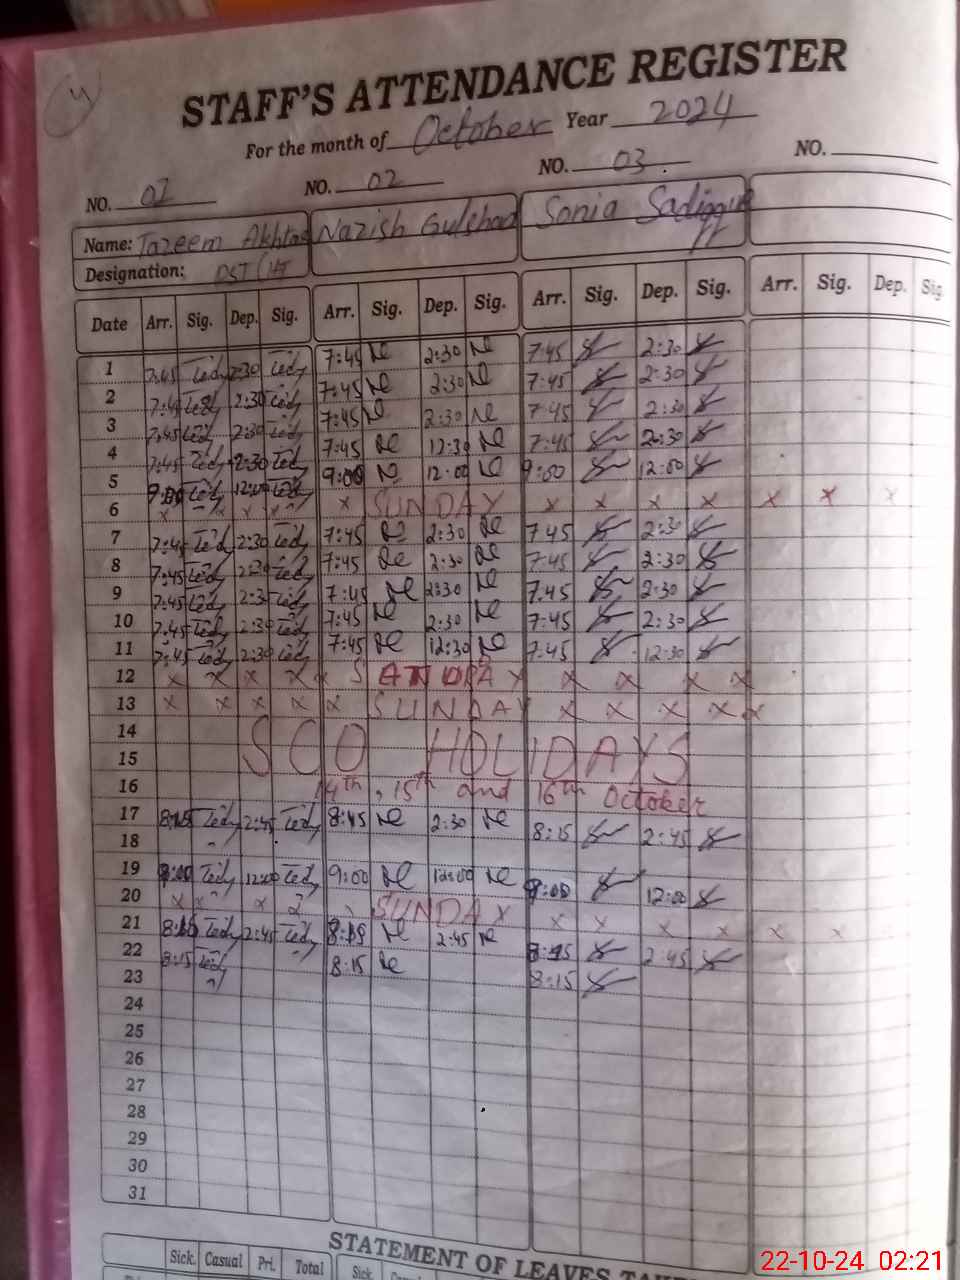 4
STAFF'S ATTENDANCE REGISTER
For the month of October Year 2024
NO. 01 NO. 02 NO. 03 NO.
Name: Tazeem Akhtar Nazish Gulshad Sonia Sadiqque
Designation: PST
Date Arr. Sig. Dep. Sig. Arr. Sig. Dep. Sig. Arr. Sig. Dep. Sig. Arr. Sig. Dep. Sig.
1 7:45 2:30 7:45 2:30 7:45 2:30
2 7:45 2:30 7:45 2:30 7:45 2:30
3 7:45 2:30 7:45 2:30 7:45 2:30
4 7:45 2:30 7:45 12:30 7:45 2:30
5 9:00 12:00 9:00 12:00 9:00 12:00
6 x x x x x SUNDAY x x x x x x x
7 7:45 2:30 7:45 2:30 7:45 2:30
8 7:45 2:30 7:45 2:30 7:45 2:30
9 7:45 2:30 7:45 2:30 7:45 2:30
10 7:45 2:30 7:45 2:30 7:45 2:30
11 7:45 2:30 7:45 12:30 7:45 12:30
12 x x x x x x x x x
13 x x x x x SUNDAY x x x x x
14
15 SCO HOLIDAYS
16 14th, 15th and 16th October
17 8:15 2:45 8:45 2:30 8:15 2:45
18
19 9:00 12:00 9:00 12:00 9:00 12:00
20 x x x SUNDAY x x x x x x
21 8:15 2:45 8:15 2:45 8:15 2:45
22 8:15 8:15 8:15
23
24
25
26
27
28
29
30
31
STATEMENT OF LEAVES
Sick. Casual Pri. Total Sick.
22-10-24 02:21